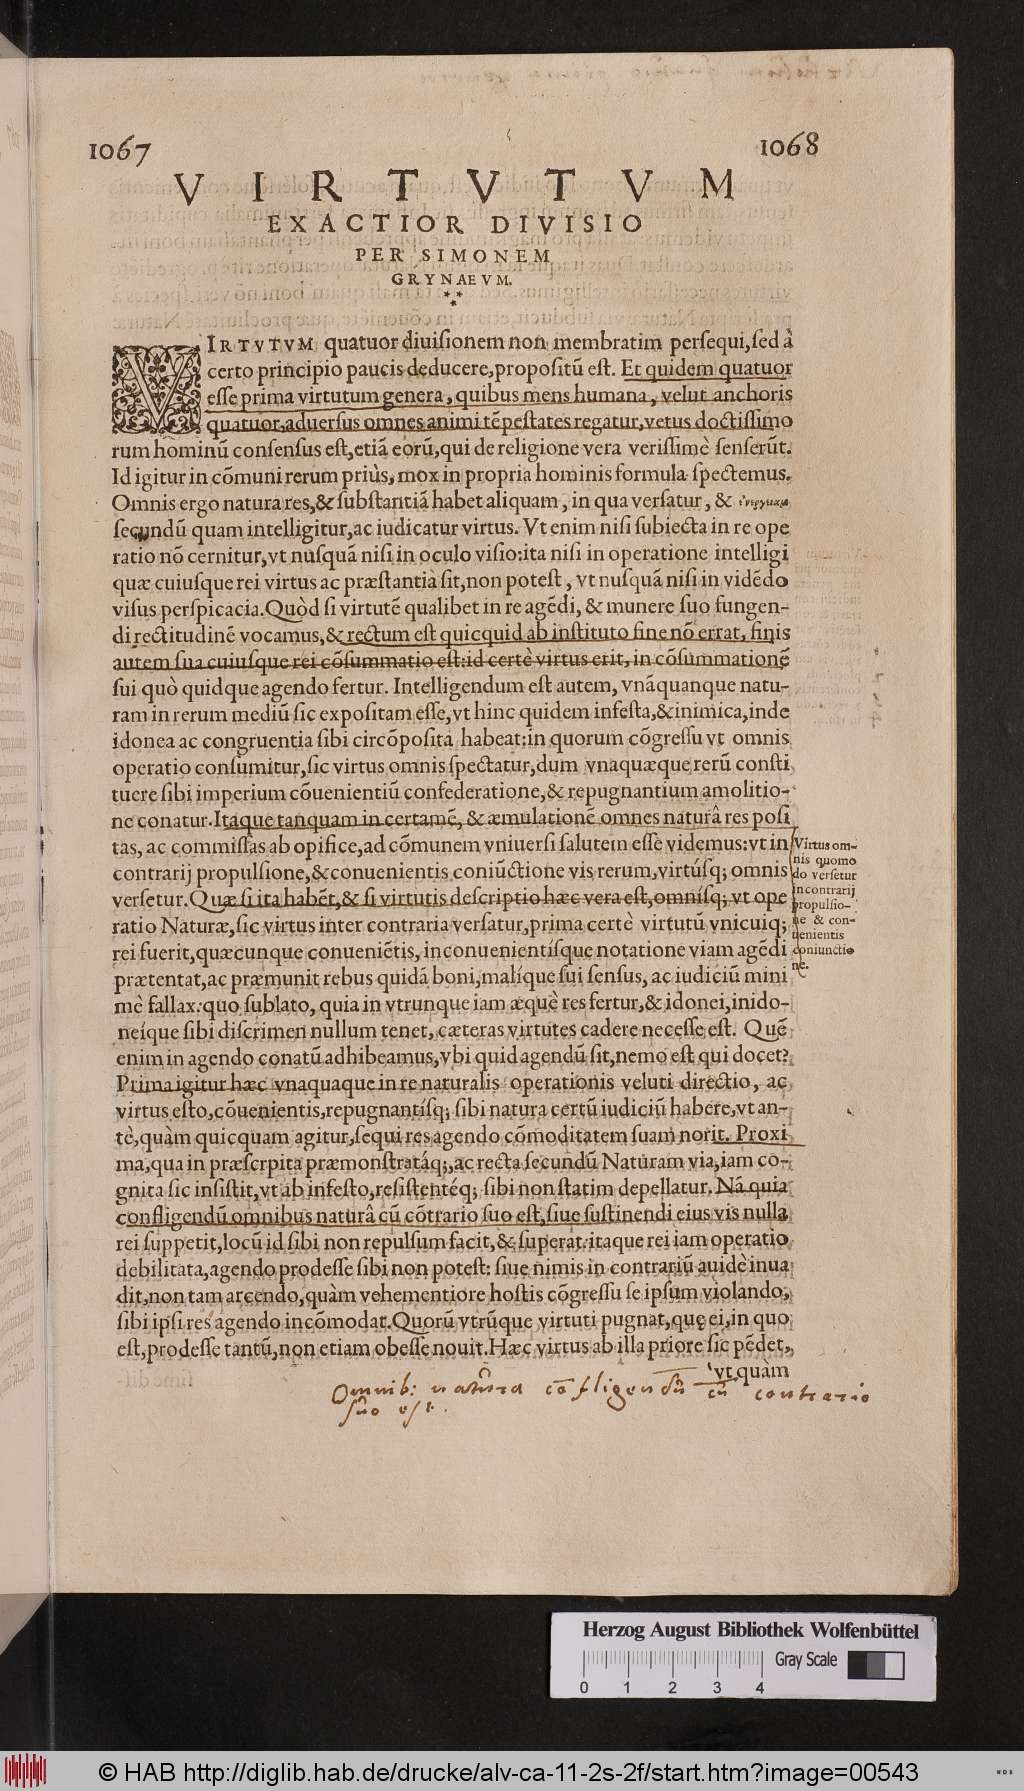 1067
1068
VIRTVTVM
EXACTIOR DIVISIO
PER SIMONEM
GRYNAEVM.
VIRTVTVM quatuor diuiſionem non membratim perſequi, ſed à
certo principio paucis deducere, propoſitū eſt. Et quidem quatuor
eſſe prima virtutum genera, quibus mens humana, velut anchoris
quatuor, aduerſus omnes animi tēpeſtates regatur, vetus doctiſſimo
rum hominū conſenſus eſt, etiā eorū, qui de religione vera veriſſimè ſenſerūt.
Id igitur in cōmuni rerum priùs, mox in propria hominis formula ſpectemus.
Omnis ergo natura res, & ſubſtantiā habet aliquam, in qua verſatur, &
ſecundū quam intelligitur, ac iudicatur virtus. Vt enim niſi ſubiecta in re ope
ratio nō cernitur, vt nuſquā niſi in oculo viſio: ita niſi in operatione intelligi
quæ cuiuſque rei virtus ac præſtantia ſit, non poteſt, vt nuſquā niſi in vidēdo
viſus perſpicacia. Quòd ſi virtutē qualibet in re agēdi, & munere ſuo fungen-
di rectitudinē vocamus, & rectum eſt quicquid ab inſtituto fine nō errat, finis
autem ſua cuiuſque rei cōſummatio eſt: id certè virtus erit, in cōſummationē
ſui quò quidque agendo fertur. Intelligendum eſt autem, vnāquanque natu-
ram in rerum mediū ſic expoſitam eſſe, vt hinc quidem infeſta, & inimica, inde
idonea ac congruentia ſibi circōpoſita habeat: in quorum cōgreſſu vt omnis
operatio conſumitur, ſic virtus omnis ſpectatur, dum vnaquæque rerū conſti
tuere ſibi imperium cōuenientiū confederatione, & repugnantium amolitio-
ne conatur. Itaque tanquam in certamē, & æmulationē omnes naturâ res poſi
tas, ac commiſſas ab opifice, ad cōmunem vniuerſi ſalutem eſſe videmus: vt in
contrarij propulſione, & conuenientis coniūctione vis rerum, virtúſq; omnis
verſetur. Quæ ſi ita habēt, & ſi virtutis deſcriptio hæc vera eſt, omniſq; vt ope
ratio Naturæ, ſic virtus inter contraria verſatur, prima certè virtutū vnicuiq;
rei fuerit, quæcunque conueniētis, inconuenientíſque notatione viam agēdi
prætentat, ac præmunit rebus quidā boni, malíque ſui ſenſus, ac iudiciū mini
mè fallax: quo ſublato, quia in vtrunque iam æquè res fertur, & idonei, inido-
neíque ſibi diſcrimen nullum tenet, cæteras virtutes cadere neceſſe eſt. Quē
enim in agendo conatū adhibeamus, vbi quid agendū ſit, nemo eſt qui docet?
Prima igitur hæc vnaquaque in re naturalis operationis veluti directio, ac
virtus eſto, cōuenientis, repugnantíſq; ſibi natura certū iudiciū habere, vt an-
tè, quàm quicquam agitur, ſequi res agendo cōmoditatem ſuam norit. Proxi
ma, qua in præſcrpita præmonſtratáq;, ac recta ſecundū Naturam via, iam co-
gnita ſic inſiſtit, vt ab infeſto, reſiſtentéq; ſibi non ſtatim depellatur. Nā quia
confligendū omnibus naturâ cū cōtrario ſuo eſt, ſiue ſuſtinendi eius vis nulla
rei ſuppetit, locū id ſibi non repulſum facit, & ſuperat: itaque rei iam operatio
debilitata, agendo prodeſſe ſibi non poteſt: ſiue nimis in contrariū auidè inua
dit, non tam arcendo, quàm vehementiore hoſtis cōgreſſu ſe ipſum violando,
ſibi ipſi res agendo incōmodat. Quorū vtrūque virtuti pugnat, quę ei, in quo
eſt, prodeſſe tantū, non etiam obeſſe nouit. Hæc virtus ab illa priore ſic pēdet,
vt quàm
Virtus om-
nis quomo
do verſetur
in contrarij
propulſio-
ne & con-
uenientis
coniunctio
ne.
Omnib: natûra cōfligendū cū contrario
ſuo eſt.
Herzog August Bibliothek Wolfenbüttel
Gray Scale
0 1 2 3 4
© HAB http://diglib.hab.de/drucke/alv-ca-11-2s-2f/start.htm?image=00543